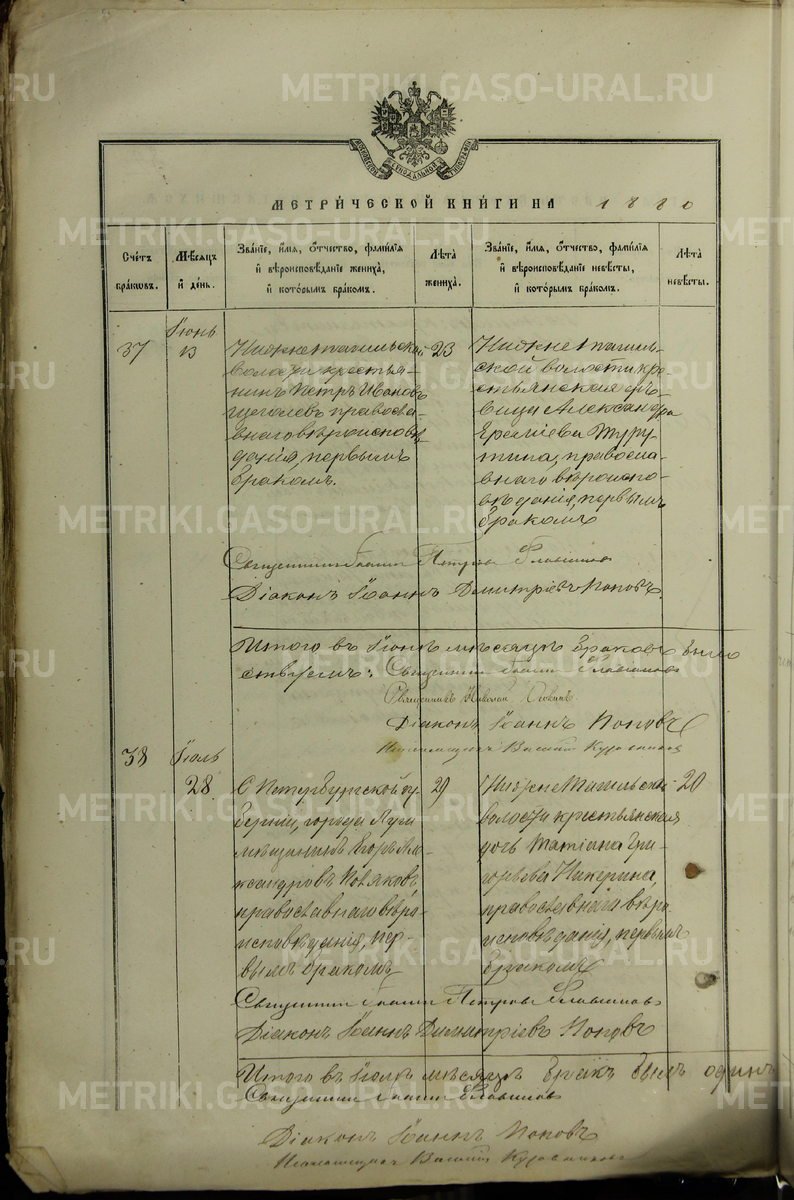 МЕТРИ́ЧЕСКОЙ КНИ́ГИ НА 1880
Сче́тъ бра́ковъ.
Мѣ́сяцъ и́ де́нь.
Зва́нїе, и́мя, ѻ́тчество, фами́лїя и́ вѣроисповѣ́данїе жениха̀, и́ кото́рымъ бра́комъ.
Лѣ́та жениха̀.
Зва́нїе, и́мя, ѻ́тчество, фами́лїя и́ вѣроисповѣ́данїе невѣ́сты, и́ кото́рымъ бра́комъ.
Лѣ́та невѣ́сты.
37
Іюнь
13
Нижнетагильской
волости крестья-
нинъ Петръ Ивановъ
Щеголевъ правосла-
внаго вѣроисповѣ-
данія, первымъ
бракомъ.
23
Нижнетагиль-
ской волости кре-
стьянская дѣ-
вица Александра
Еремѣева
православ-
наго вѣроиспо-
вѣданія, первымъ
бракомъ
Священникъ Іоаннъ Петровъ
Діаконъ Іоаннъ Димитріевъ Поповъ.
Итого въ Іюнѣ мѣсяцѣ браковъ было
Священникъ Іоаннъ
Священникъ Николай
Діаконъ Іоаннъ Поповъ
Псаломщикъ Василій
38
Іюль
28
С Петербургской гу-
берніи, города Луги
мѣщанинъ Егоръ Але-
ксандровъ
православнаго вѣро-
исповѣданія, пер-
вымъ бракомъ
29
Нижне Тагильской
волости крестьянская
дочь Татіана Гри-
горьева
православнаго вѣро-
исповѣданія, первымъ
бракомъ
20
Священникъ Іоаннъ Петровъ
Діаконъ Іоаннъ Димитріевъ Поповъ
Итого въ Іюлѣ мѣсяцѣ бракъ былъ одинъ
Священникъ Іоаннъ
Діаконъ Іоаннъ Поповъ
Псаломщикъ Василій
METRIKI.GASO-URAL.RU